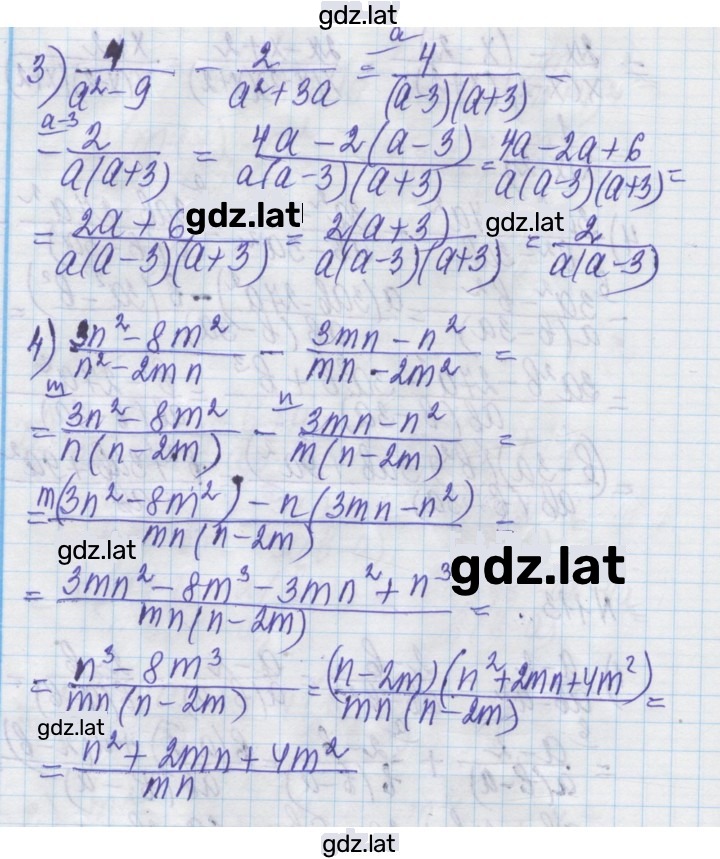 gdz.lat
3) 4/(a²-9) - 2/(a²+3a) = 4/((a-3)(a+3)) ^a -
- 2/(a(a+3)) ^(a-3) = (4a-2(a-3))/(a(a-3)(a+3)) = (4a-2a+6)/(a(a-3)(a+3)) =
= (2a+6)/(a(a-3)(a+3)) = (2(a+3))/(a(a-3)(a+3)) = 2/(a(a-3))
gdz.lat
gdz.lat
4) (3n²-8m²)/(n²-2mn) - (3mn-n²)/(mn-2m²) =
= ^m (3n²-8m²)/(n(n-2m)) - ^n (3mn-n²)/(m(n-2m)) =
= (m(3n²-8m²)-n(3mn-n²))/(mn(n-2m)) =
gdz.lat
gdz.lat
= (3mn²-8m³-3mn²+n³)/(mn(n-2m)) =
= (n³-8m³)/(mn(n-2m)) = ((n-2m)(n²+2mn+4m²))/(mn(n-2m)) =
gdz.lat
= (n²+2mn+4m²)/(mn)
gdz.lat